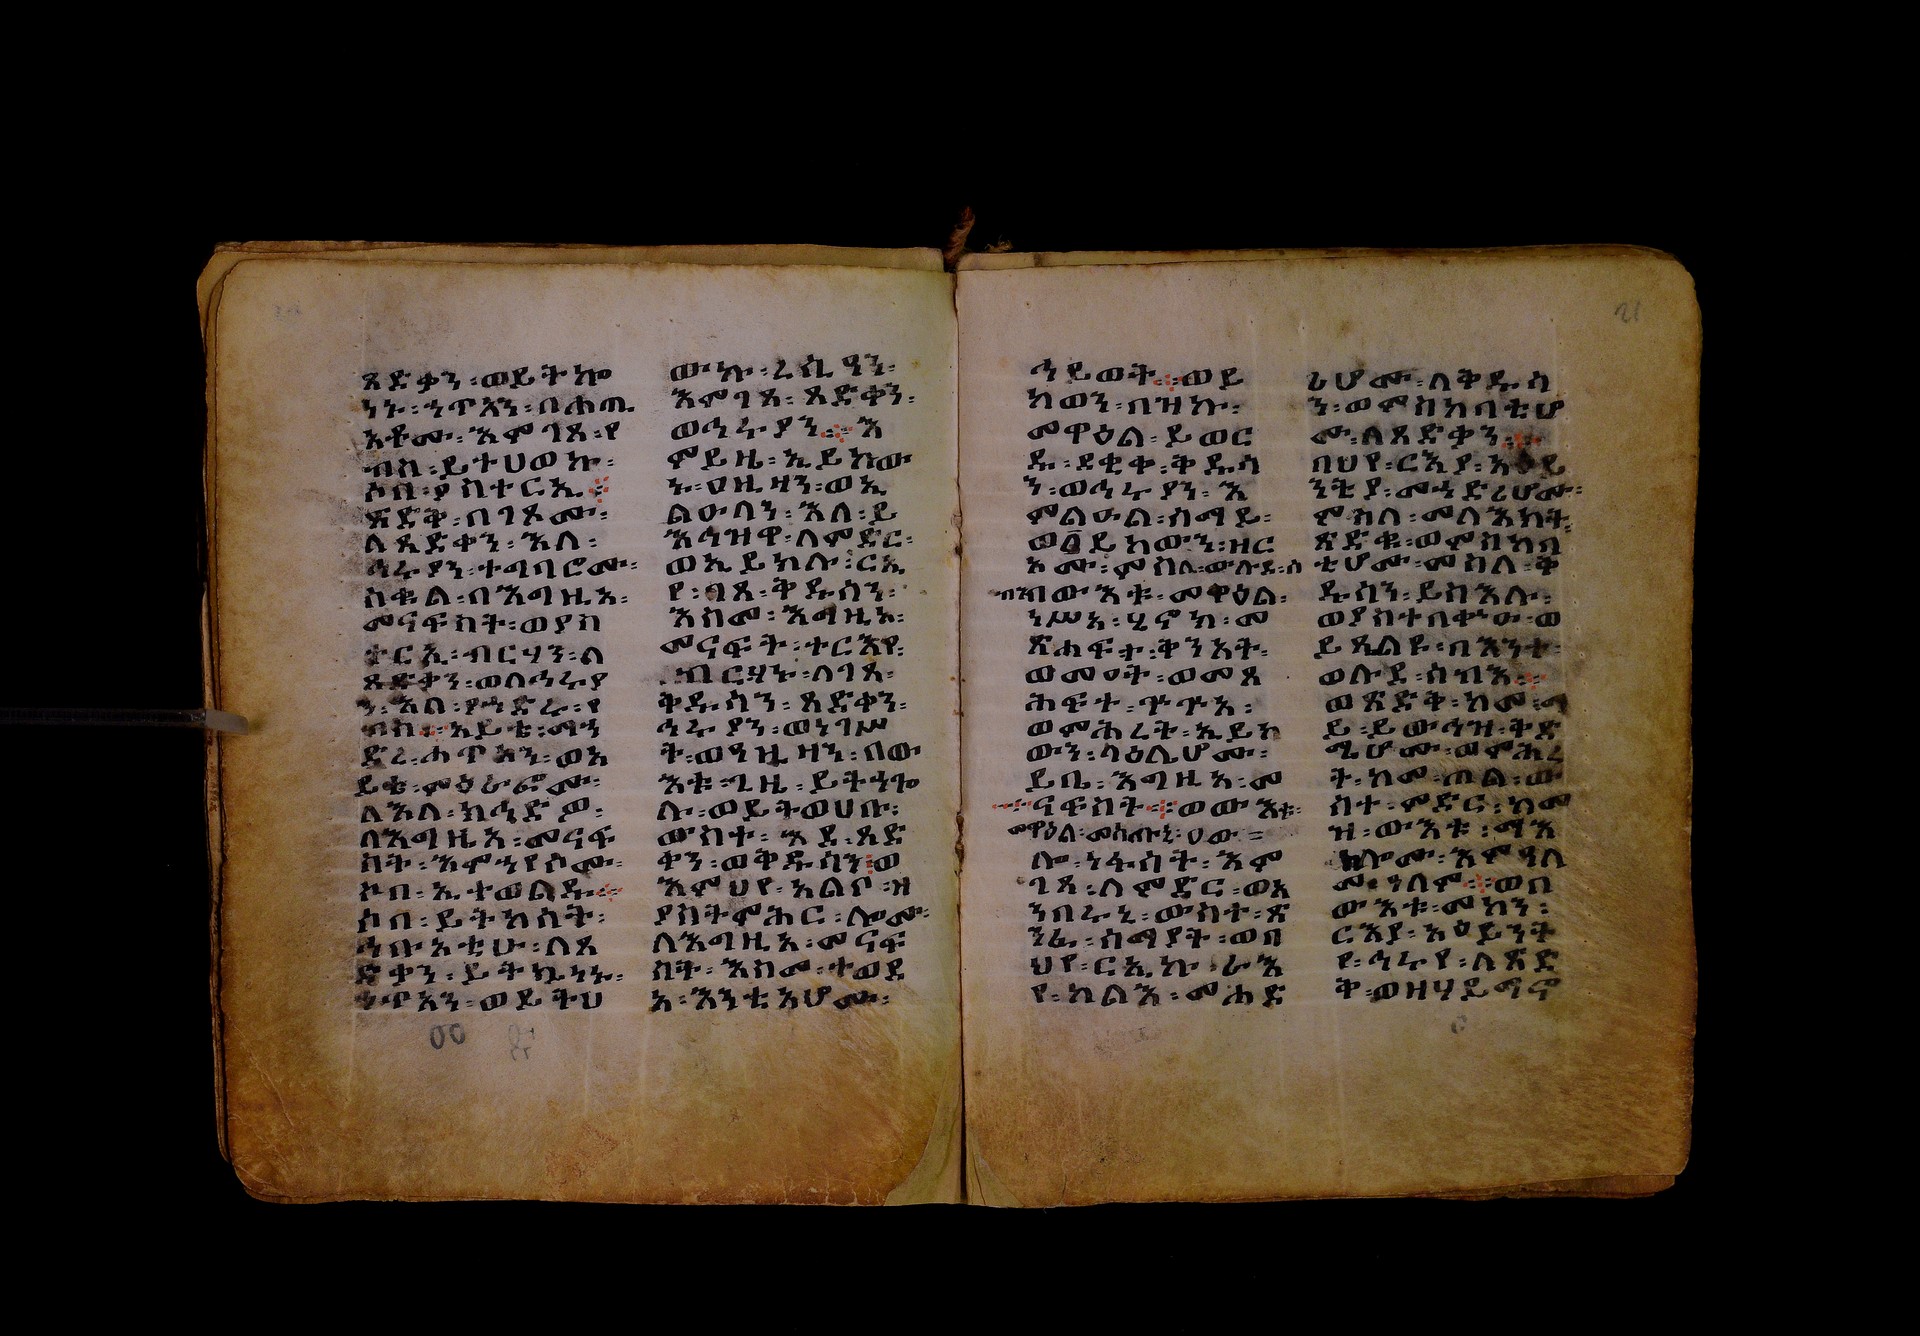 ጻድቃን፡ወይትኰ
ነኑ፡ኃጥአን፡በሐጢ
አቶሙ፡እምገጸ፡የ
ብስ፡ይተሀወኩ፡
ሶበ፡ያስተርኢ፡
ጻድቅ፡በገጾሙ፡
ለጻድቃን፡እለ፡
ኅሩያን፡ተግባሮሙ፡
ስቁል፡በእግዚአ፡
መናፍስት፡ወያስ
ተርኢ፡ብርሃን፡ለ
ጻድቃን፡ወለኅሩያ
ን፡እለ፡የኀድሩ፡የ
ብስ፡አይቴ፡ማኅ
ደረ፡ሐጥአን፡ወአ
ይቴ፡ምዕራፎሙ፡
ለእለ፡ክሕድዎ፡
ለእግዚአ፡መናፍ
ስት፡እምኀየሶሙ፡
ሶበ፡ኢተወልዱ፡
ሶበ፡ይትከሰት፡
ኅቡአቲሁ፡ለጻ
ድቃን፡ይትኴነኑ፡
ኃጥአን፡ወይትሀ
ውኩ፡ረሲዓን፡
እምገጸ፡ጻድቃን፡
ወኅሩያን፡እ
ምይዜ፡ኢይከው
ኑ፡ዐዚዛን፡ወኢ
ልዑላን፡እለ፡ይ
እኅዝዋ፡ለምድር፡
ወኢይክሉ፡ርኢ
የ፡ገጸ፡ቅዱሳን፡
እስመ፡እግዚአ፡
መናፍት፡ተርእየ፡
ብርሃኑ፡ለገጸ፡
ቅዱሳን፡ጻድቃን፡
ኅሩያን፡ወነገሥ
ት፡ወዓዚዛን፡በው
እቱ፡ጊዜ፡ይትኃጐ
ሉ፡ወይትወሀቡ፡
ውስተ፡እደ፡ጻድ
ቃን፡ወቅዱሳን፡ወ
እምህየ፡አልቦ፡ዘ
ያስትምሕር፡ሎሙ፡
ለእግዚአ፡መናፍ
ስት፡እስመ፡ተወደ
አ፡እንቲአሆሙ፡
21
ኅይወት፡ወይ
ከወን፡በዝኩ፡
መዋዕል፡ይወር
ዱ፡ደቂቀ፡ቅዱሳ
ን፡ወኅሩያን፡እ
ምልዑል፡ሰማይ፡
ወ፩ይከውን፡ዘር
አሙ፡ምስለ፡ውሉደ፡ሰ
ብእ፡በውእቱ፡መዋዕል፡
ነሥአ፡ሄኖክ፡መ
ጽሐፍተ፡ቅንአት፡
ወመዓት፡ወመጸ
ሕፍተ፡ጕጕአ፡
ወምሕረት፡ኢይከ
ውን፡ላዕሌሆሙ፡
ይቤ፡እግዚአ፡መ
ናፍስት፡ወውእቱ፡
መዋዕል፡መሰጠኒ፡ዐው
ሎ፡ነፋስት፡እም
ገጸ፡ለምድር፡ወአ
ንበሩኒ፡ውስተ፡ጽ
ንፈ፡ሰማያት፡ወበ
ህየ፡ርኢኩ፡ራእ
የ፡ከልእ፡መኀድ
ሪሆሙ፡ለቅዱሳ
ን፡ወምስካባቲሆ
ሙ፡ለጻድቃን፡
በህየ፡ርእያ፡አዕይ
ንትያ፡መኃድሪሆሙ፡
ምስለ፡መላእክት፡
ጽድቁ፡ወምስካባ
ቲሆሙ፡መስለ፡ቅ
ዱሳን፡ይስእሉ፡
ወያስተበቀኍዑ፡ወ
ይጼልዩ፡በእንተ፡
ወሉደ፡ሰብእ፡
ወጽድቅ፡ከመ፡ማ
ይ፡ይውኅዝ፡ቅድ
ሜሆሙ፡ወምሕረ
ት፡ከመ፡ጠል፡ው
ስተ፡ምድር፡ከመ
ዝ፡ውእቱ፡ማእ
ከሎሙ፡እምዓለ
መ፡ዓለም፡ወበ
ውእቱ፡መካን፡
ርእያ፡አዕይንት
የ፡ኅሩየ፡ለጽድ
ቅ፡ወዘሃይማኖ